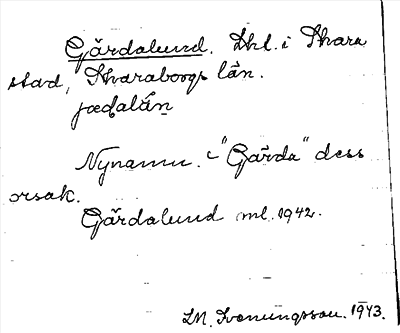 Gärdalund. Lhl. i Skara
stad, Skaraborgs län.
jæḍalấṇ
Nynamn. - "Gärda" dess
orsak.
Gärdalund ml. 1942.
LM. Svenungsson. 1943.